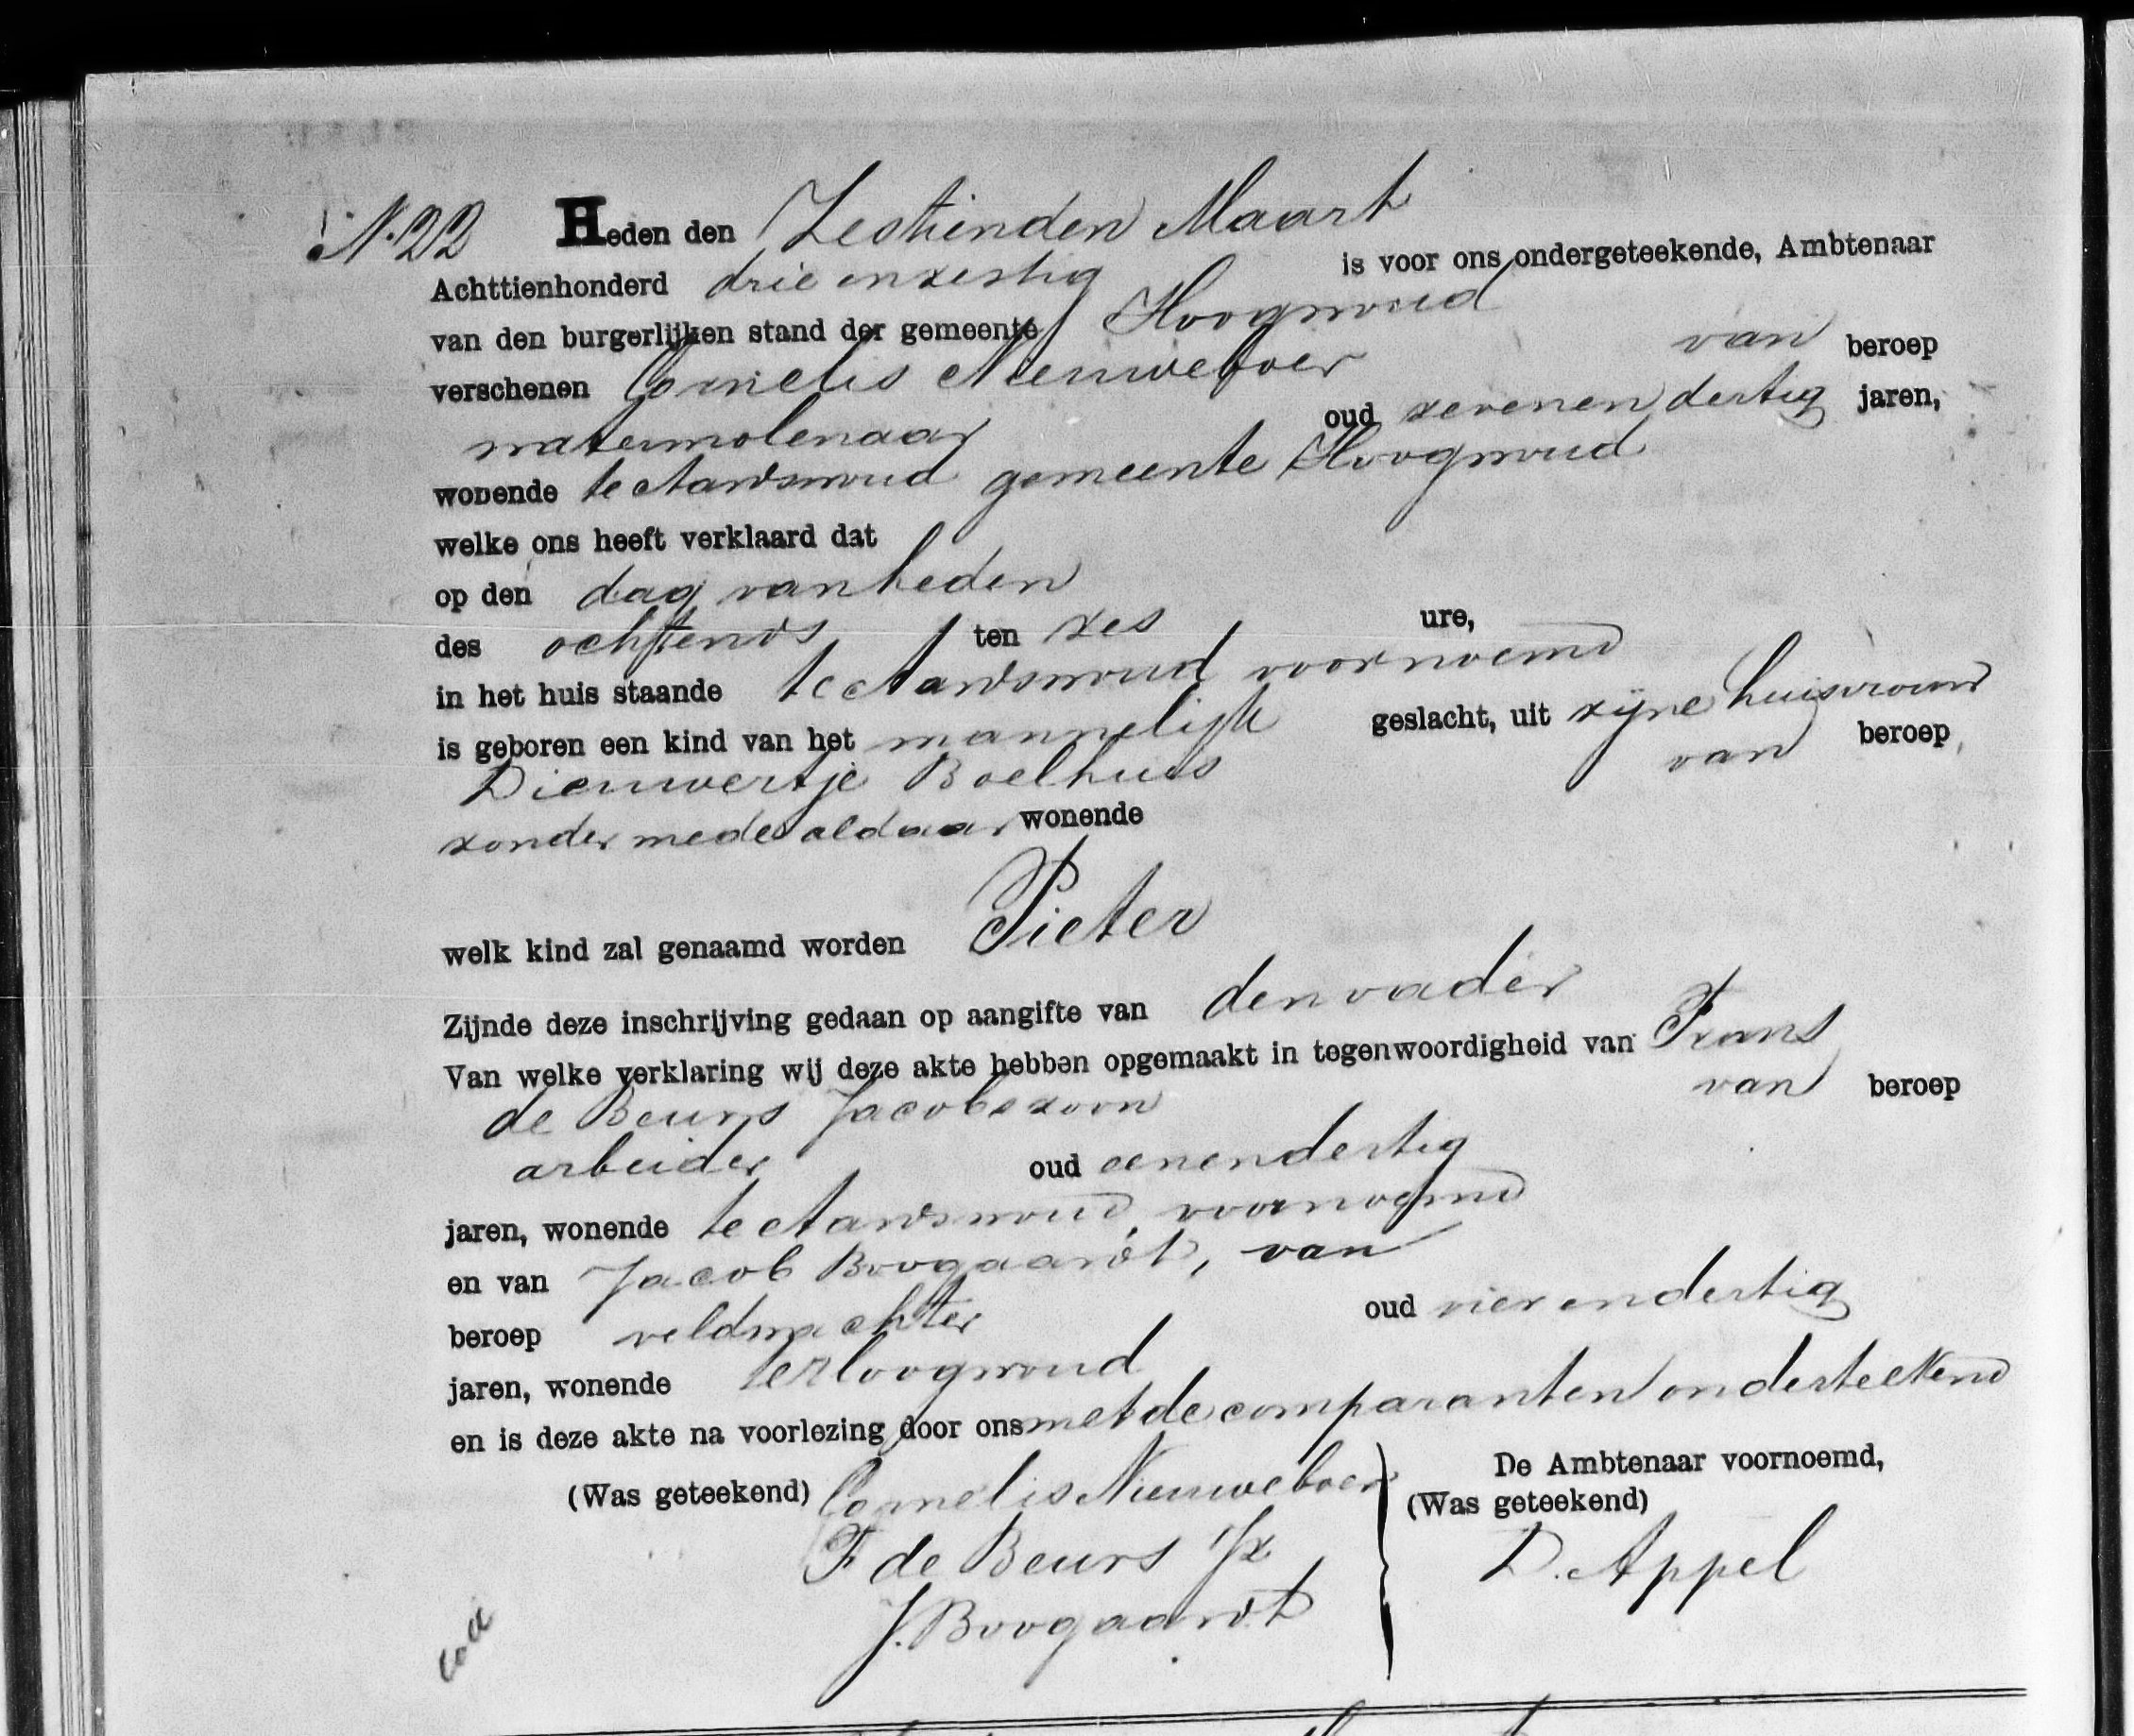 N. 22 Heden den Zestienden Maart
Achttienhonderd drie en zestig is voor ons ondergeteekende, Ambtenaar
van den burgerlijken stand der gemeente Hoogwoud
verschenen Cornelis Nieuweboer van beroep
watermolenaar oud zevenendertig jaren,
wonende te Aardswoud gemeente Hoogwoud
welke ons heeft verklaard dat
op den dag van heden
des ochtends ten zes ure,
in het huis staande te Aardswoud voornoemd
is geboren een kind van het mannelijk geslacht, uit zijne huisvrouw
Dieuwertje Boelhuis van beroep
zonder mede aldaar wonende
welk kind zal genaamd worden Pieter
Zijnde deze inschrijving gedaan op aangifte van den vader
Van welke verklaring wij deze akte hebben opgemaakt in tegenwoordigheid van Frans
de Beurs Jacobszoon van beroep
arbeider oud eenendertig
jaren, wonende te Aardswoud voornoemd
en van Jacob Boogaardt, van
beroep veldwachter oud vierendertig
jaren, wonende te Hoogwoud
en is deze akte na voorlezing door ons met de comparanten onderteekend
(Was geteekend) Cornelis Nieuweboer
F de Beurs J/z
J. Boogaardt
De Ambtenaar voornoemd,
(Was geteekend)
D. Appel